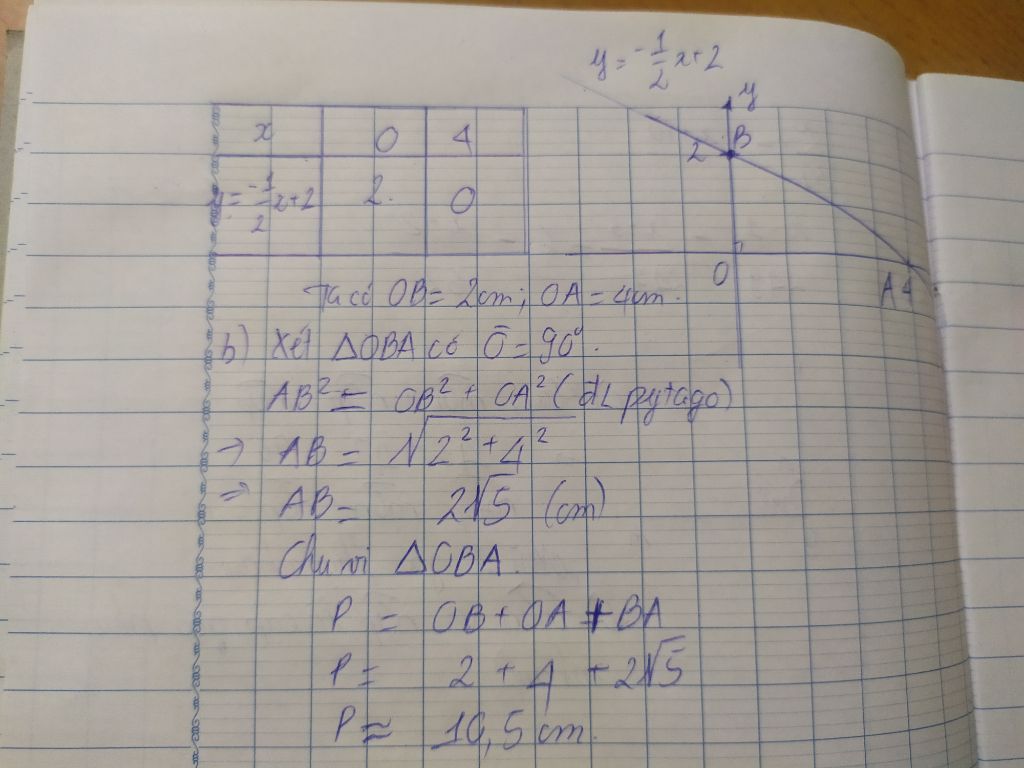 y = -1/2 x + 2
y
x 0 4
B
2
y = -1/2 x + 2 2 0
O
A 4
Ta có OB = 2cm; OA = 4cm.
b) Xét △OBA có Ô = 90°.
AB² = OB² + OA² (đL pytago)
→ AB = √2² + 4²
⇒ AB = 2√5 (cm)
Chu vi △OBA.
P = OB + OA + BA
P = 2 + 4 + 2√5
P ≈ 10,5 cm.